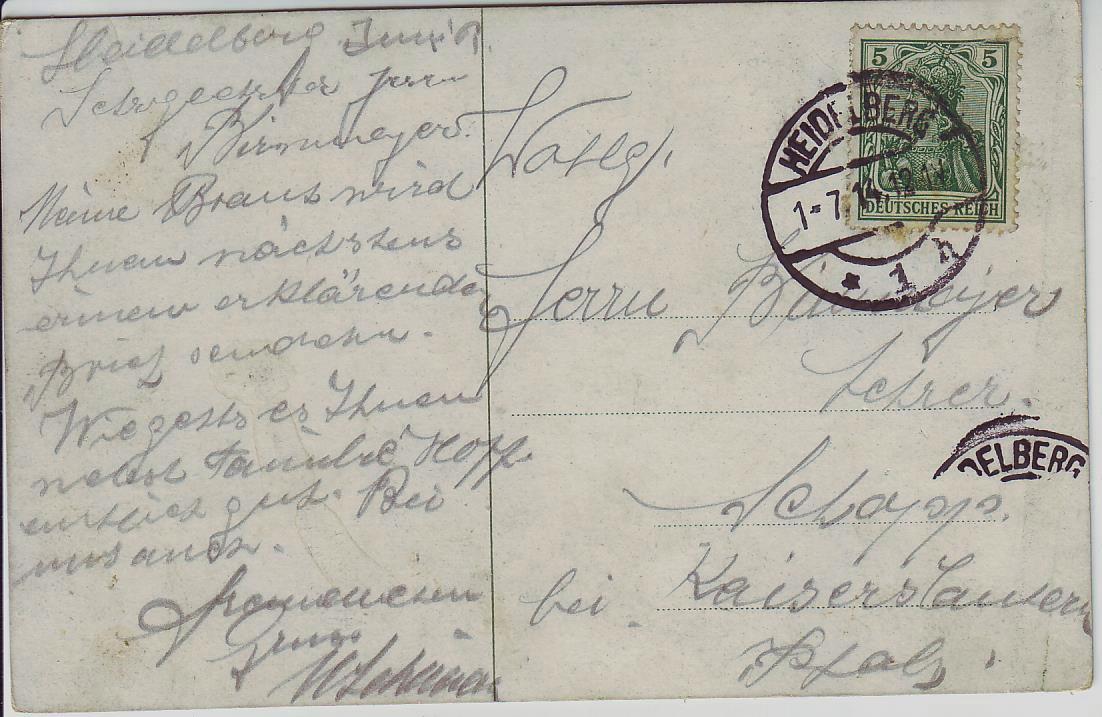 Heidelberg, Juni
Sehrgeehrter Herr
Birnmeyer.
Meine Braut wird
Ihnen nächstens
einen erklärenden
Brief senden.
Wie geht es Ihnen
nebst Familie Hoff.
gut. Bei
uns auch.
Gruss
5 5
DEUTSCHES REICH
HEIDELBERG
1-7.14.
* 1 h
Herrn Birnmeyer
Lehrer.
DELBERG
Schopp.
bei Kaiserslautern
Pfalz.